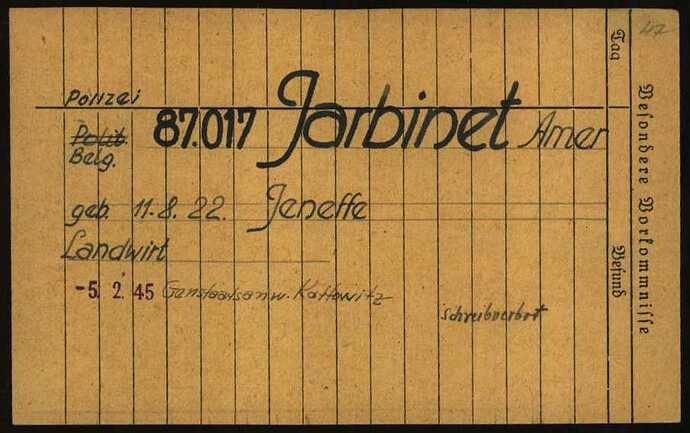 47
Polizei
Polit. 87.017 Jarbinet Amer
Belg.
geb. 11.8.22. Jeneffe
Landwirt
-5. 2. 45 Genstaatsanw. Kattowitz
Schreibverbot
Tag Befund
Besondere Vorkommnisse